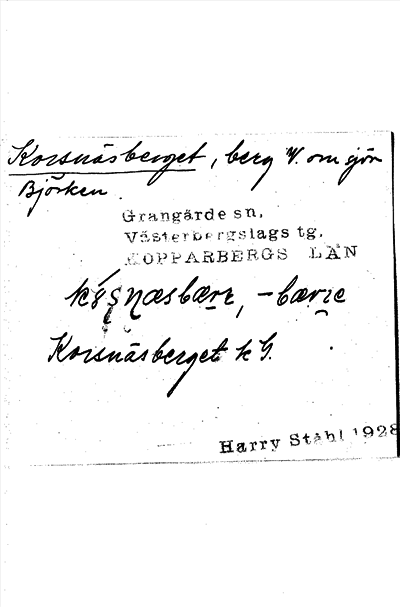 Korsnäsberget, berg V. om sjön
Björken.
Grangärde sn.
Västerbergslags tg.
KOPPARBERGS LÄN
Korsnäsberget k G.
Harry Ståhl 1928